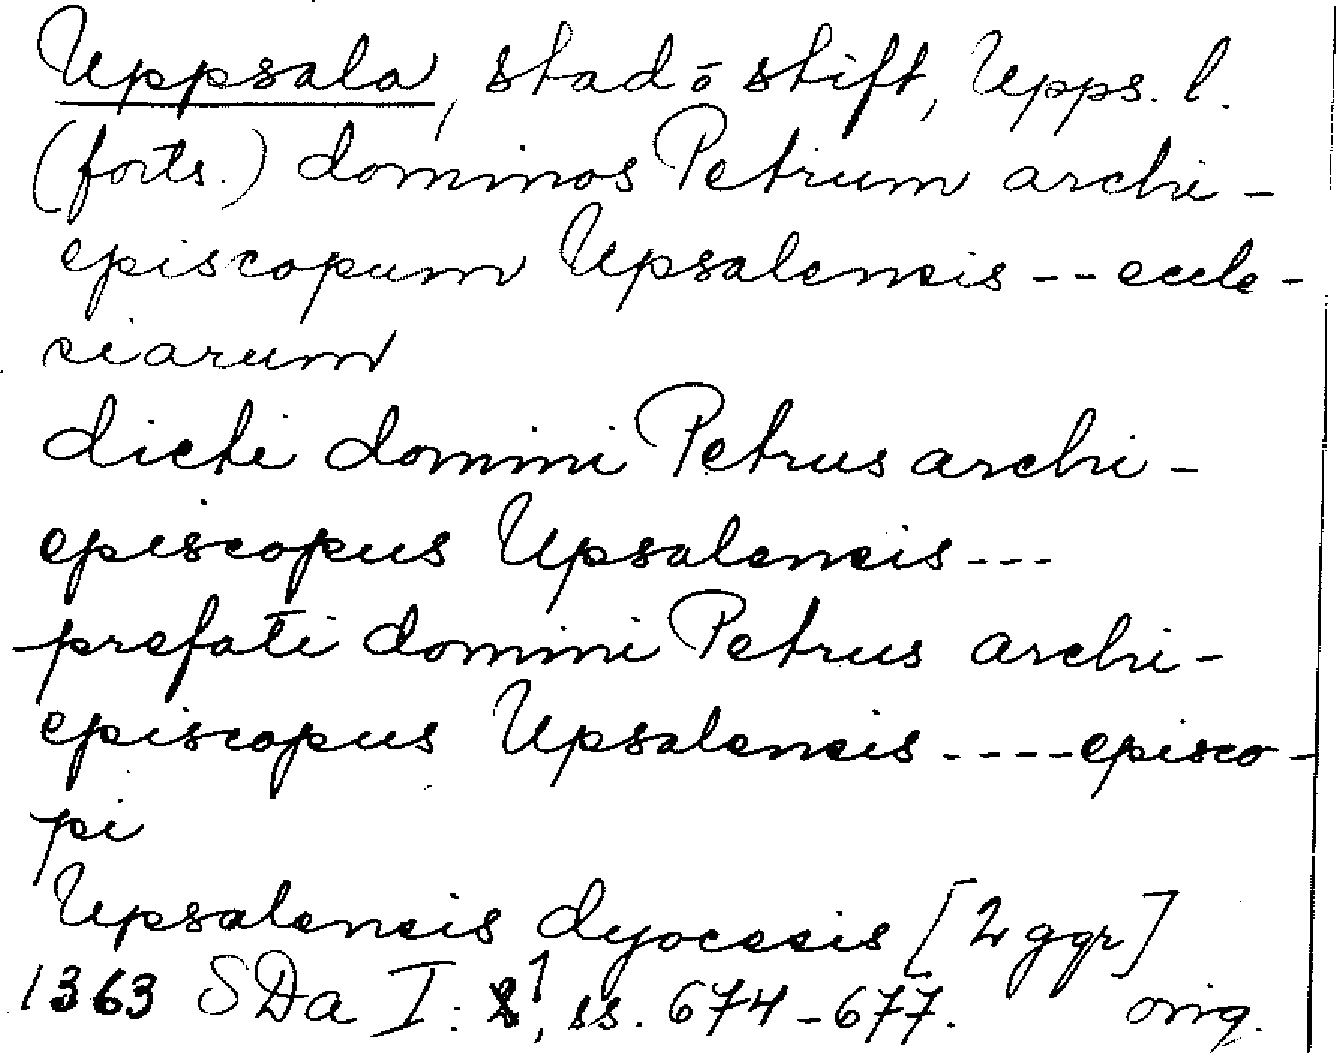 Uppsala, stad o stift, Upps. l.
(forts.) dominos Petrum archi-
episcopum Upsalensis -- eccle-
siarum
dicti domini Petrus archi-
episcopus Upsalensis ---
prefati domini Petrus archi-
episcopus Upsalensis ---- episco-
pi
Upsalensis dyocesis [2 ggr]
1363 SDa I: 1, ss. 674-677. orig.